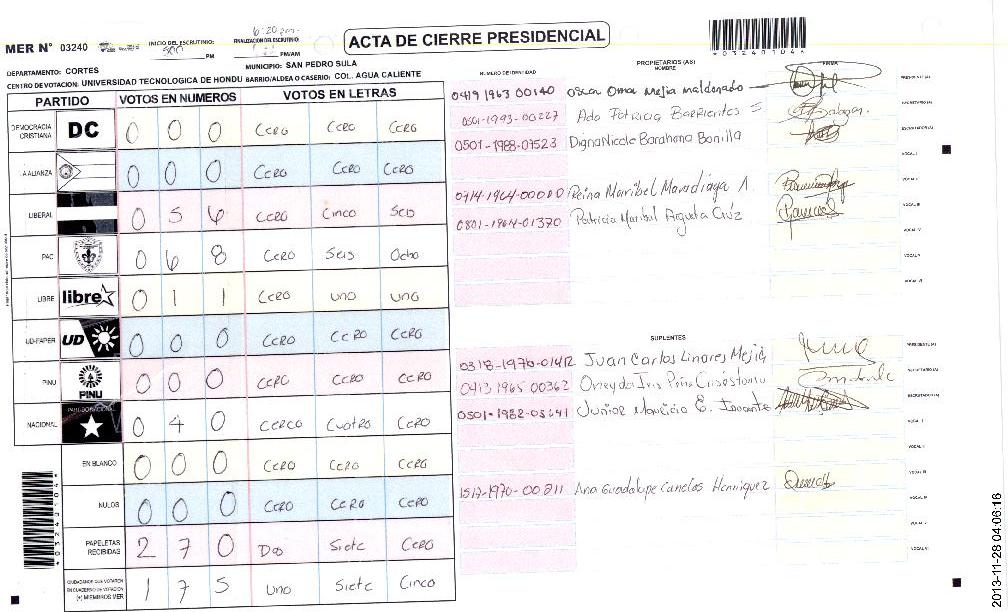 6:20 pm
MER N° 03240 INICIO DEL ESCRUTINIO: 500 PM FINALIZACION DEL ESCRUTINIO: PM/AM
ACTA DE CIERRE PRESIDENCIAL
DEPARTAMENTO: CORTES MUNICIPIO: SAN PEDRO SULA
CENTRO DE VOTACION: UNIVERSIDAD TECNOLOGICA DE HONDU BARRIO/ALDEA O CASERIO: COL. AGUA CALIENTE
PARTIDO VOTOS EN NUMEROS VOTOS EN LETRAS
DEMOCRACIA CRISTIANA DC 0 0 0 CERO CERO CERO
LA ALIANZA 0 0 0 CERO CERO CERO
LIBERAL 0 5 6 CERO Cinco Seis
PAC 0 6 8 CERO Seis Ocho
LIBRE libre 0 1 1 CERO uno uno
UD-FAPER UD 0 0 0 CERO CERO CERO
PINU PINU 0 0 0 CERO CERO CERO
NACIONAL PARTIDO NACIONAL 0 4 0 CERCO Cuatro CERO
EN BLANCO 0 0 0 CERO CERO CERO
NULOS 0 0 0 CERO CERO CERO
PAPELETAS RECIBIDAS 2 7 0 Dos Siete CERO
CIUDADANOS QUE VOTARON EN CUADERNO DE VOTACION (+) MIEMBROS MER 1 7 5 uno Siete Cinco
NUMERO DE IDENTIDAD PROPIETARIOS (AS) NOMBRE FIRMA
0419 1963 00140 Oscar Omar Mejia maldonado PRESIDENTE (A)
0501-1993-00227 Ada Patricia Barrientos S SECRETARIO (A)
0501-1988-07523 Digna Nicole Barahona Bonilla ESCRUTADOR (A)
VOCAL I
Reina Maribel Maradiaga A. VOCAL II
0801-1964-01370 Patricia Maribel Argueta Cruz VOCAL III
VOCAL IV
VOCAL V
VOCAL VI
SUPLENTES
0318-1970-01412 Juan Carlos Linares Mejia PRESIDENTE (A)
0413 1965 00362 Iris Peña SECRETARIO (A)
0501-1988-03641 Junior Mauricio E. ESCRUTADOR (A)
VOCAL I
VOCAL II
VOCAL III
1517-1970-00811 Ana Guadalupe Canelas Henriquez VOCAL IV
VOCAL V
VOCAL VI
2013-11-28 04:06:16